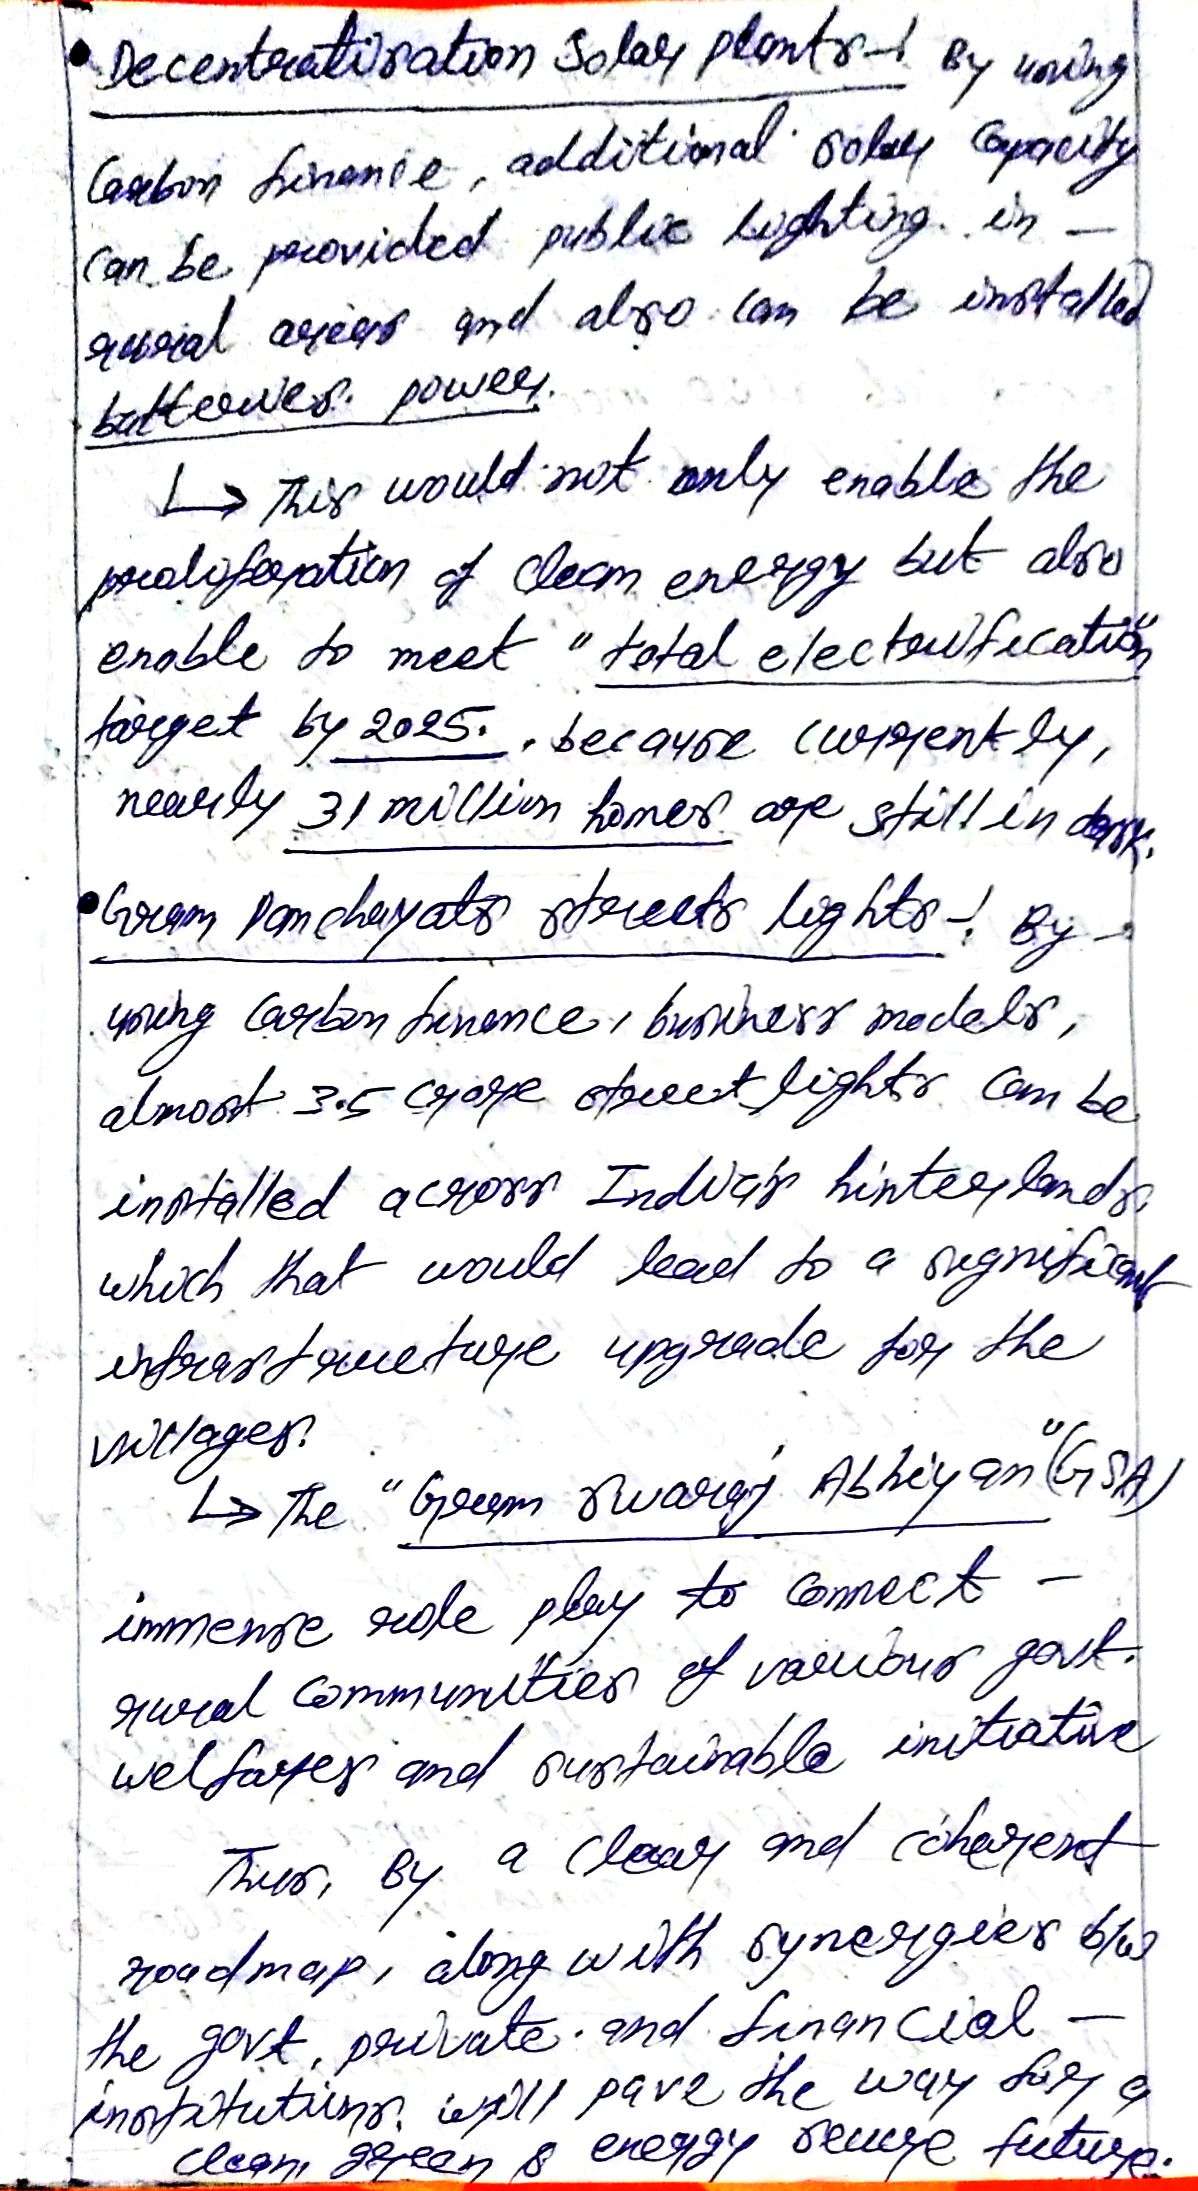 • Decentralisation Solar plants -! By using
Carbon finance, additional solar capacity
can be provided public lighting in —
rural areas and also can be installed
batteries power.
↳ This would not only enable the
proliferation of clean energy but also
enable to meet "total electrification"
target by 2025. because currently,
nearly 31 million homes are still in dark.
• Gram Panchayats streets lights -! By -
using Carbon finance, business models,
almost 3.5 crore street lights can be
installed across India's hinterlands,
which that would lead to a significant
infrastructure upgrade for the
villages.
↳ The "Gram swaraj Abhiyan" (GSA)
immense role play to connect —
rural communities of various govt.
welfares and sustainable initiative
Thus, By a clear and coherent
roadmap, along with synergies b/w
the govt, private and financial —
institutions. will pave the way for a
clean, green & energy secure future.